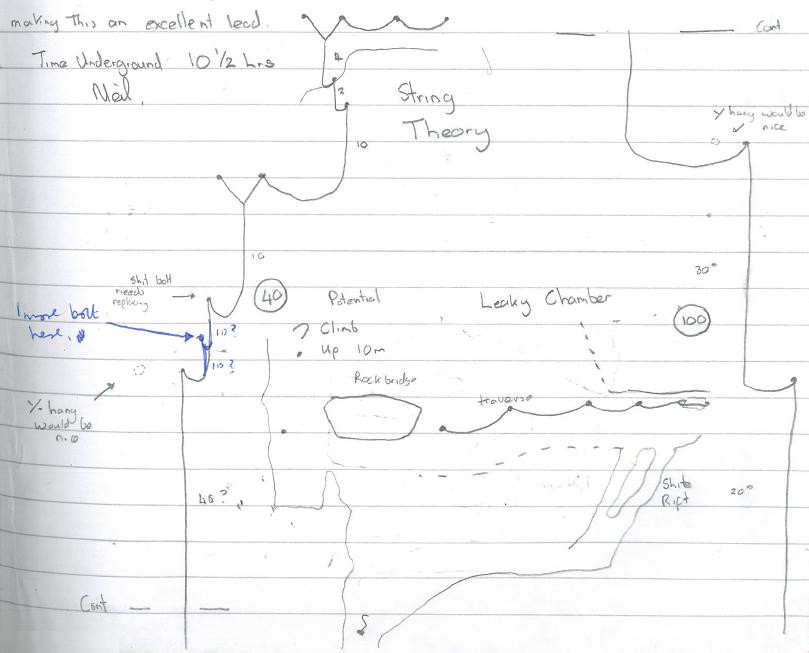 making This an excellent lead.
Time Underground 10 1/2 hrs
Neil,
4
2
10
String
Theory
Cont
Y hang would be
nice
10
30°
shit bolt
needs
replacing
40
Potential
? Climb
Up 10m
Leaky Chamber
100
1 more bolt
here.
10?
10?
Rockbridge
traverse
Y-hang
would be
nice
45?
Shite
Rift
20°
Cont